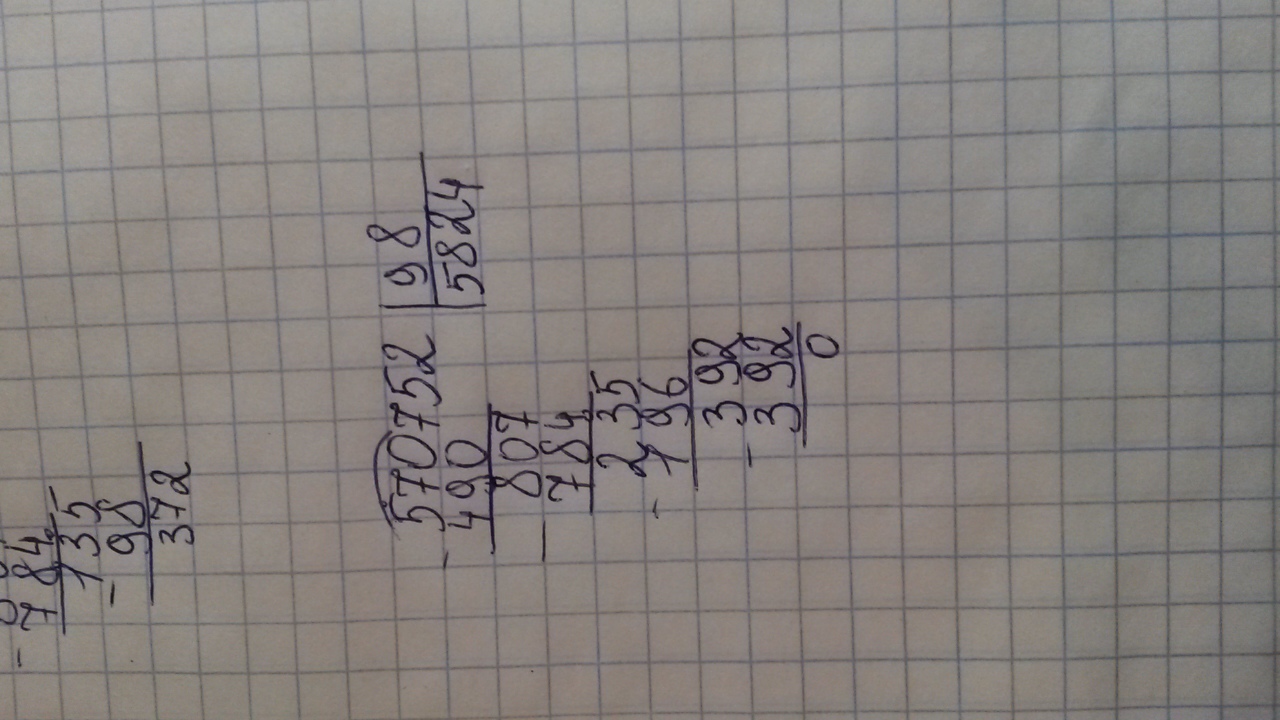 - 784
135
- 98
372
- 570752 | 98
490 | 5824
- 807
784
235
- 196
392
- 392
0